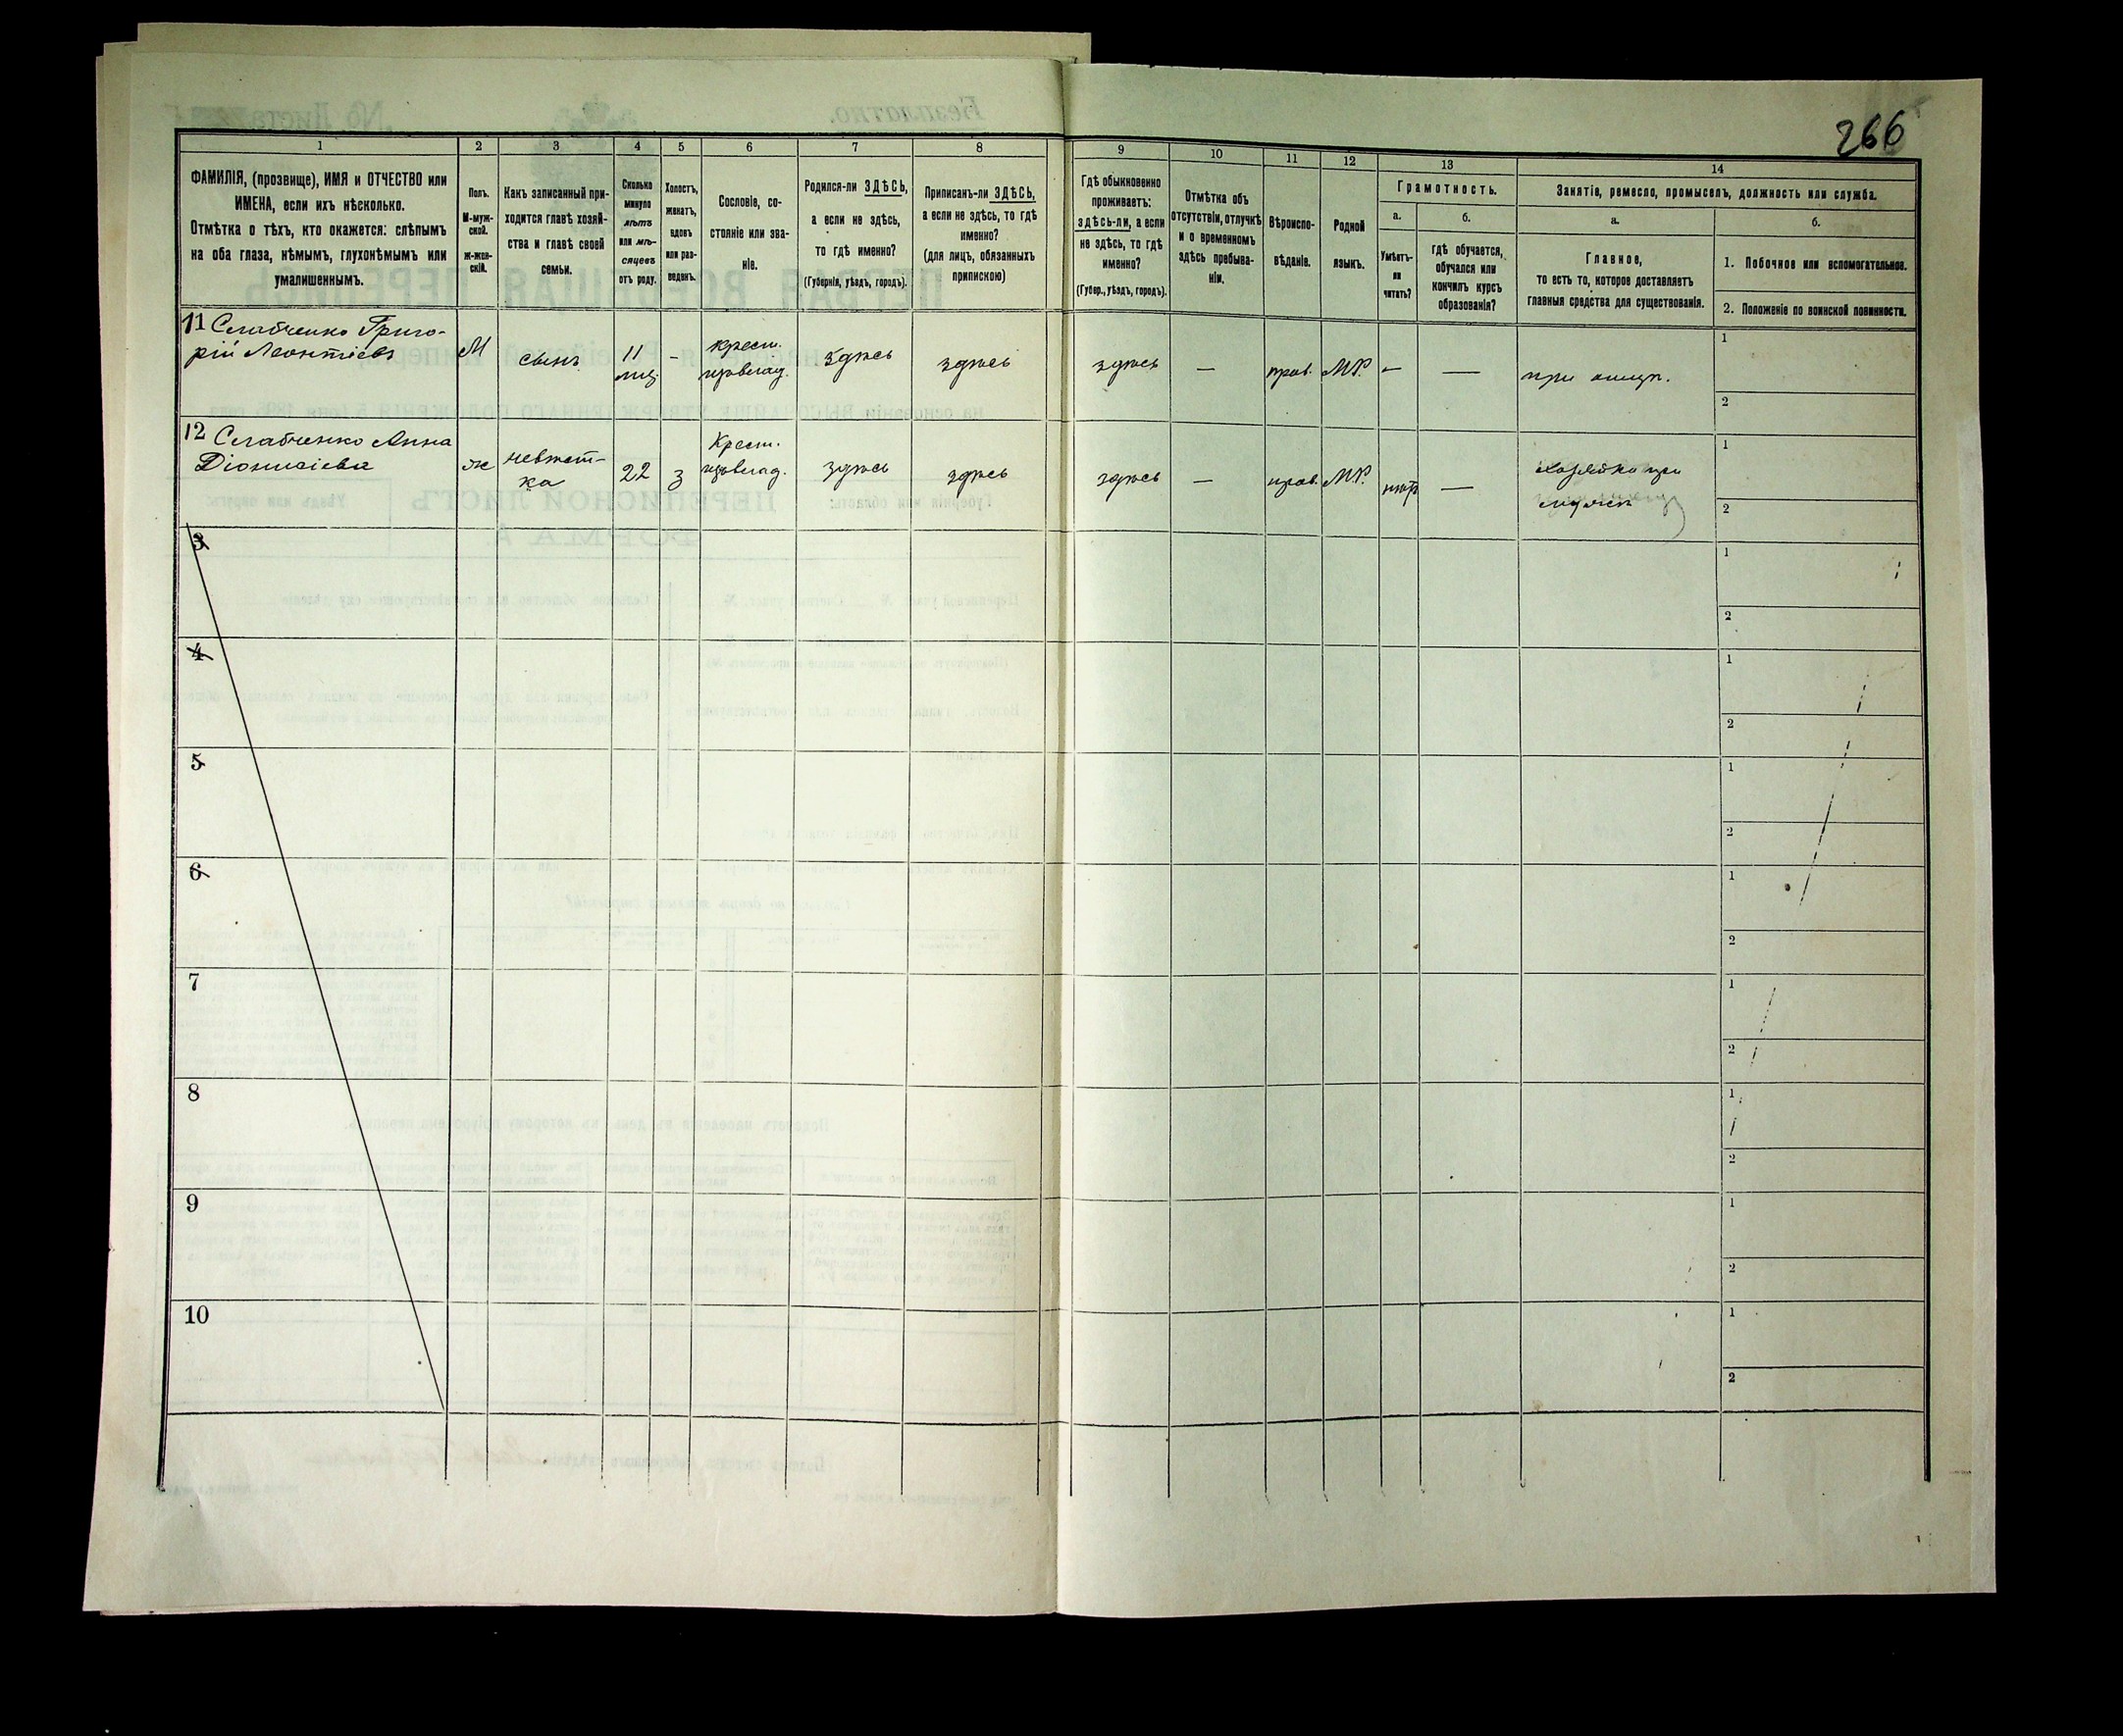 266
1 2 3 4 5 6 7 8 9 10 11 12 13 14
ФАМИЛІЯ, (прозвище), ИМЯ и ОТЧЕСТВО или
ИМЕНА, если ихъ нѣсколько.
Отмѣтка о тѣхъ, кто окажется: слѣпымъ
на оба глаза, нѣмымъ, глухонѣмымъ или
умалишеннымъ.
Полъ.
М-муж-
ской.
ж-жен-
скій.
Какъ записанный при-
ходится главѣ хозяй-
ства и главѣ своей
семьи.
Сколько
минуло
лѣтъ
или мѣ-
сяцевъ
отъ роду.
Холостъ,
женатъ,
вдовъ
или раз-
веденъ.
Сословіе, со-
стояніе или зва-
ніе.
Родился-ли ЗДѢСЬ,
а если не здѣсь,
то гдѣ именно?
(Губернія, уѣздъ, городъ).
Приписанъ-ли ЗДѢСЬ,
а если не здѣсь, то гдѣ
именно?
(для лицъ, обязанныхъ
припискою)
Гдѣ обыкновенно
проживаетъ:
здѣсь-ли, а если
не здѣсь, то гдѣ
именно?
(Губер., уѣздъ, городъ).
Отмѣтка объ
отсутствіи, отлучкѣ
и о временномъ
здѣсь пребыва-
ніи.
Вѣроиспо-
вѣданіе.
Родной
языкъ.
Грамотность.
а.
Умѣетъ-
ли
читать?
б.
гдѣ обучается,
обучался или
кончилъ курсъ
образованія?
Занятіе, ремесло, промыселъ, должность или служба.
а.
Главное,
то есть то, которое доставляетъ
главныя средства для существованія.
б.
1. Побочное или вспомогательное.
2. Положеніе по воинской повинности.
11 Слабченко Григо-
рій Леонтіевъ
М
сынъ
11
мц.
-
крест.
здѣсь
здѣсь
здѣсь
—
прав.
М.Р.
—
—
при
1
2
12 Слабченко Анна
Діонисіева
ж
невѣст-
ка
22
з
Крест.
здѣсь
здѣсь
здѣсь
—
прав.
М.Р.
нѣтъ
—
хозяйка при
1
2
3
1
2
4
1
2
5
1
2
6
1
2
7
1
2
8
1
2
9
1
2
10
1
2